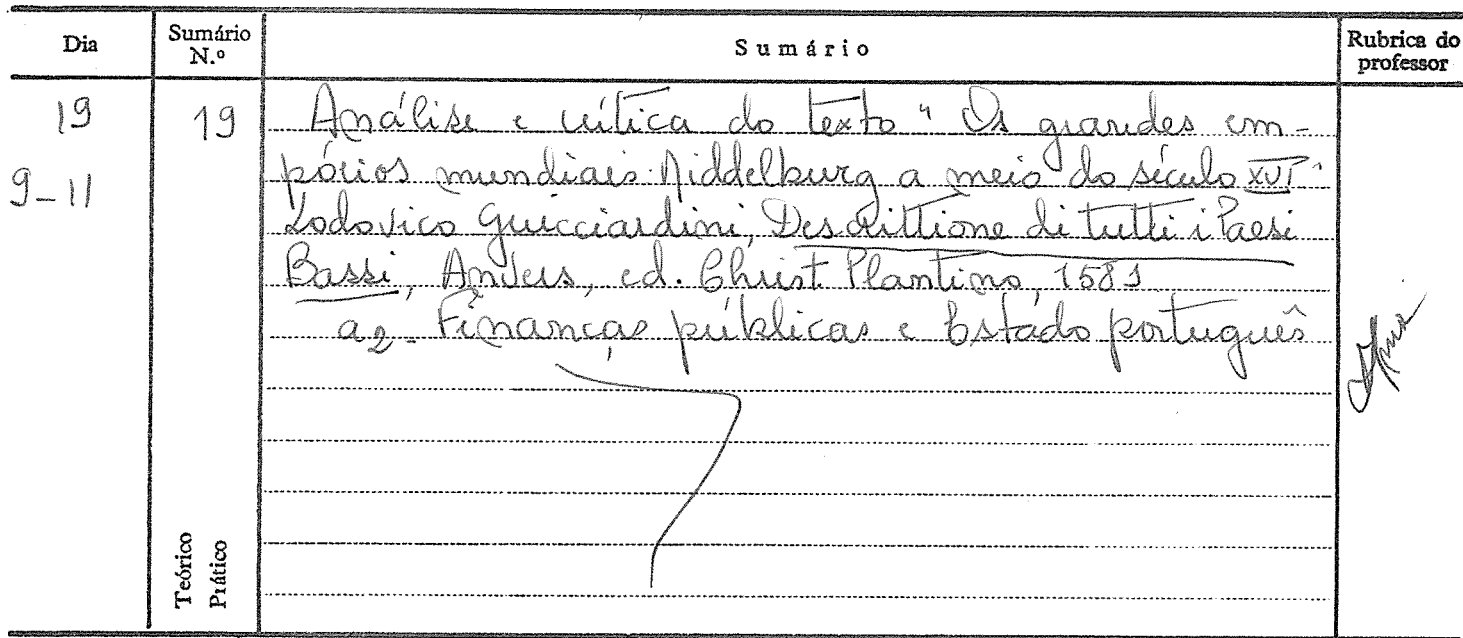 Dia
Sumário
N.º
Sumário
Rubrica do
professor
19
9-11
19
Análise e crítica do texto "Os grandes em-
pórios mundiais: Middelburg a meio do século XVI"
Lodovico Guicciardini, Descrittione di tutti i Paesi
Bassi, Anvers, ed. Christ. Plantino, 1581
a2- Finanças públicas e Estado português
Teórico
Prático